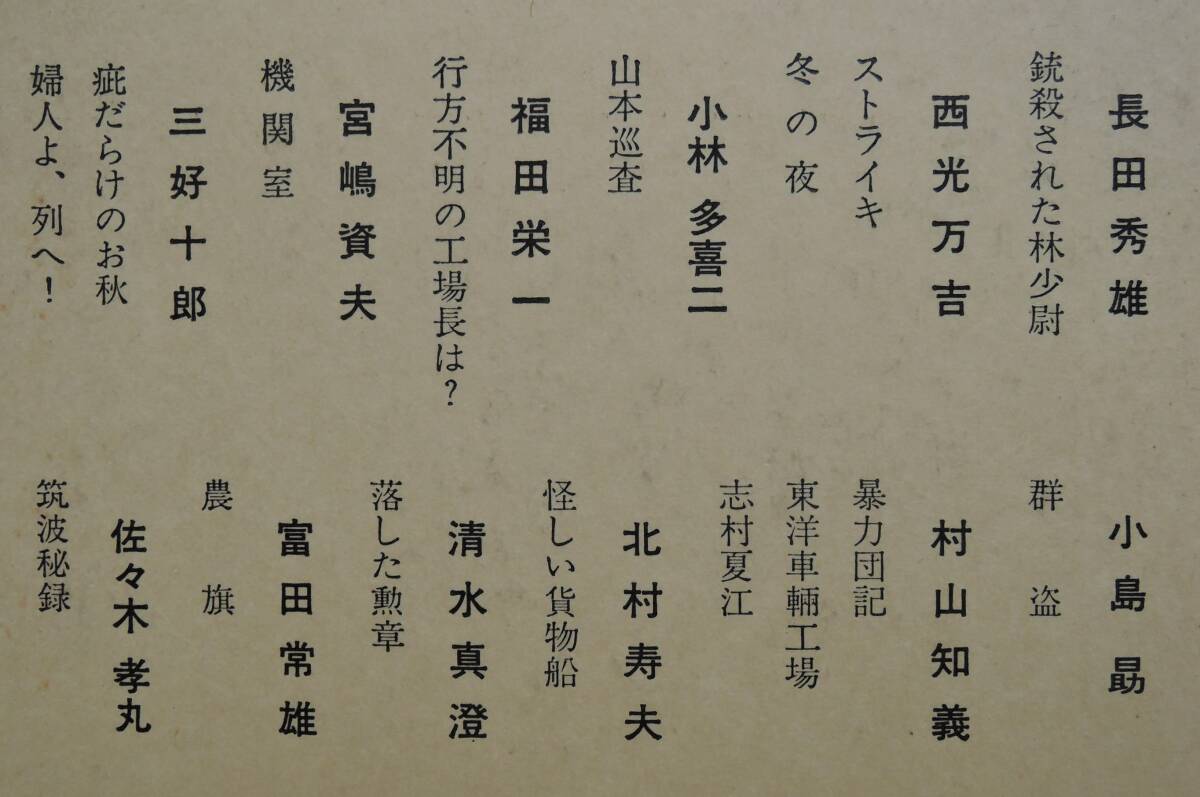 長田秀雄
銃殺された林少尉
西光万吉
ストライキ
冬の夜
小林多喜二
山本巡査
福田栄一
行方不明の工場長は?
宮嶋資夫
機関室
三好十郎
疵だらけのお秋
婦人よ、列へ!
小島勗
群盗
村山知義
暴力団記
東洋車輛工場
志村夏江
北村寿夫
怪しい貨物船
清水真澄
落した勲章
富田常雄
農旗
佐々木孝丸
筑波秘録